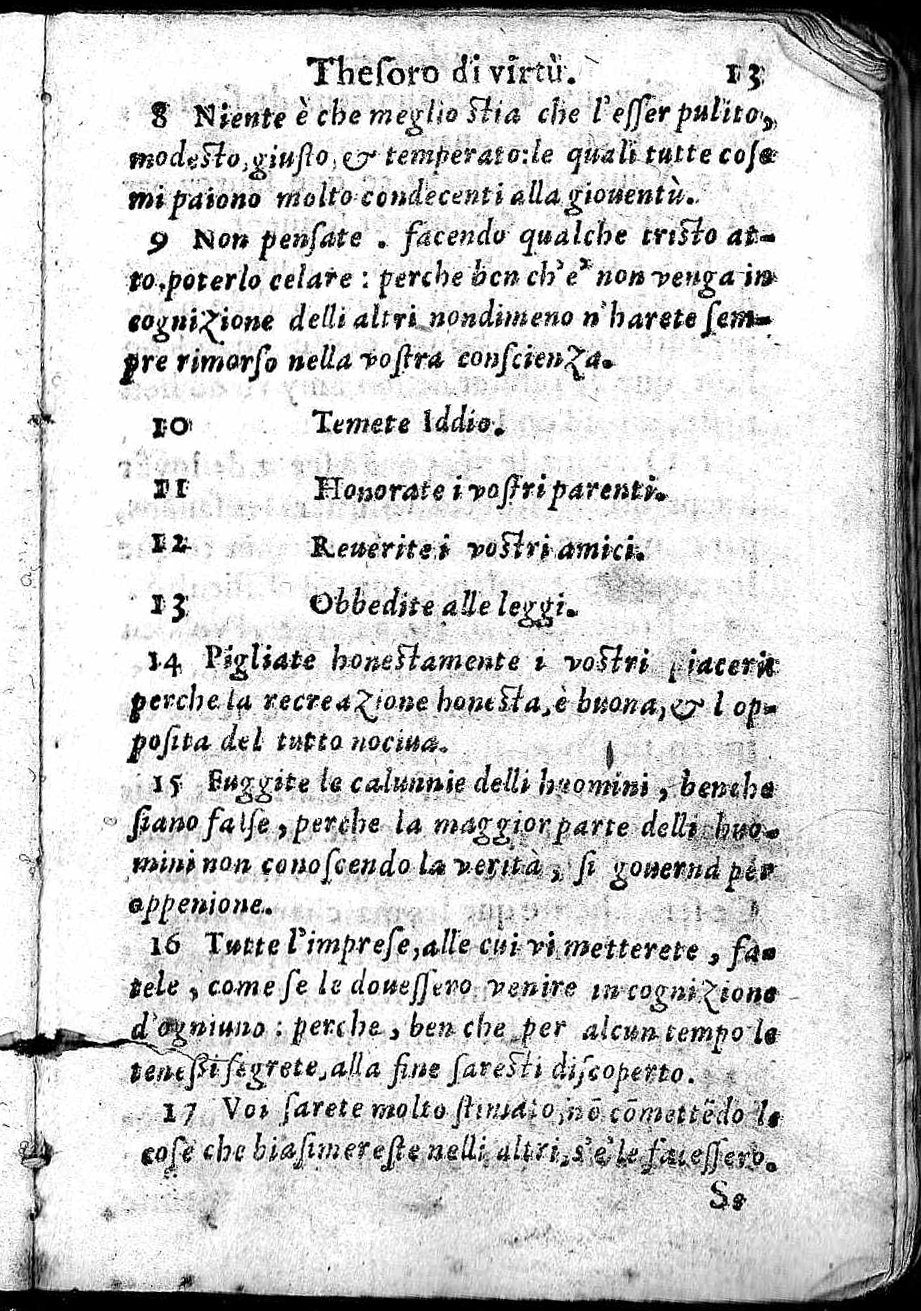 Theſoro di virtù. 13
8 Niente è che meglio ſtia che l'eſſer pulito,
modeſto, giuſto, & temperato: le quali tutte coſe
mi paiono molto condecenti alla giouentù.
9 Non penſate . facendo qualche triſto at-
to, poterlo celare : perche ben ch'e' non venga in
cognizione delli altri nondimeno n'harete ſem-
pre rimorſo nella voſtra conſcienza.
10 Temete Iddio.
11 Honorate i voſtri parenti.
12 Reuerite i voſtri amici.
13 Obbedite alle leggi.
14 Pigliate honeſtamente i voſtri piaceri:
perche la recreazione honeſta, è buona, & l op-
poſita del tutto nociua.
15 Fuggite le calunnie delli huomini, benche
ſiano falſe, perche la maggior parte delli huo-
mini non conoſcendo la verità, ſi gouerna per
oppenione.
16 Tutte l'impreſe, alle cui vi metterete, fa-
tele, come ſe le doueſſero venire in cognizione
d'ogniuno : perche, ben che per alcun tempo le
teneſſi ſegrete, alla fine fareſti diſcoperto.
17 Voi ſarete molto ſtimato, nō cōmettēdo le
coſe che biaſimereſte nelli altri, s'e' le faceſſero.
Se